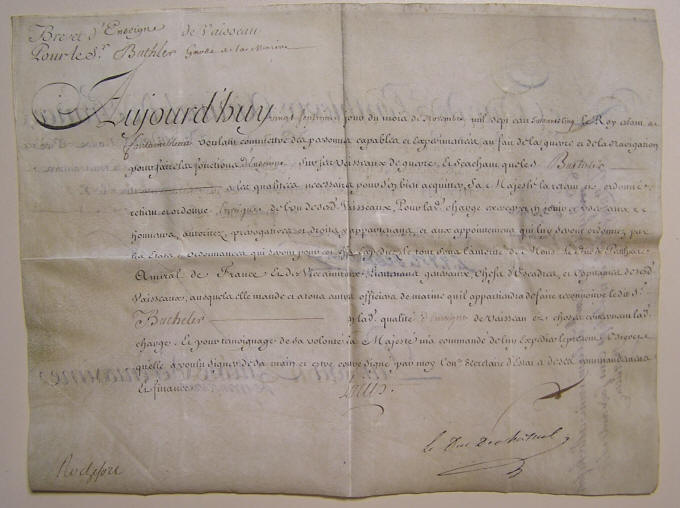 Brevet d'Enseigne de Vaisseau
Pour le Sr. Buthler Garde de la Marine
Aujourd'huy vingt septieme jour du mois de Novembre mil sept cent le Roy estant a
fontainebleau voulant commettre des personnes capables et Experimentées au fait de la guerre et de la Navigation
pour faire les fonctions d'Enseigne Sur ses Vaisseaux de guerre, Et Scachant que le S. Buthler
a les qualitéz necessaires pour s'en bien acquitter, Sa Majesté la retenu et ordonné
retient et ordonne Enseigne de l'un de sesd. Vaisseaux, Pour lad. charge exercer en jouir et user aux
honneurs, autoritez, prerogatives et droits y appartenans, et aux appointemens qui luy seront ordonnez par
les Etats et ordonnances qui seront pour cet effet expediez le tout sous l'autorité de Mons. le Duc de Penthievre
Amiral de France Et des Viceamiraux, Lieutenans generaux Chefs d'Escadres, et Capitaines de sesd.
Vaisseaux, ausquels elle mande et a tous autres officiers de marine qu'il appartiendra de faire reconnoitre led. S.
Butheler en lad. qualité d'enseigne de Vaisseau es choses concernant lad.
charge. Et pour temoignage de sa volonté Sa Majesté m'a commandé de luy Expedier le present Brevet
qu'elle a voulu signer de sa main et estre contresigné par moy Conr. Secretaire d'Etat et de ses Commandemens
et finances. Louis.
Le Duc de Choiseul
Rochefort